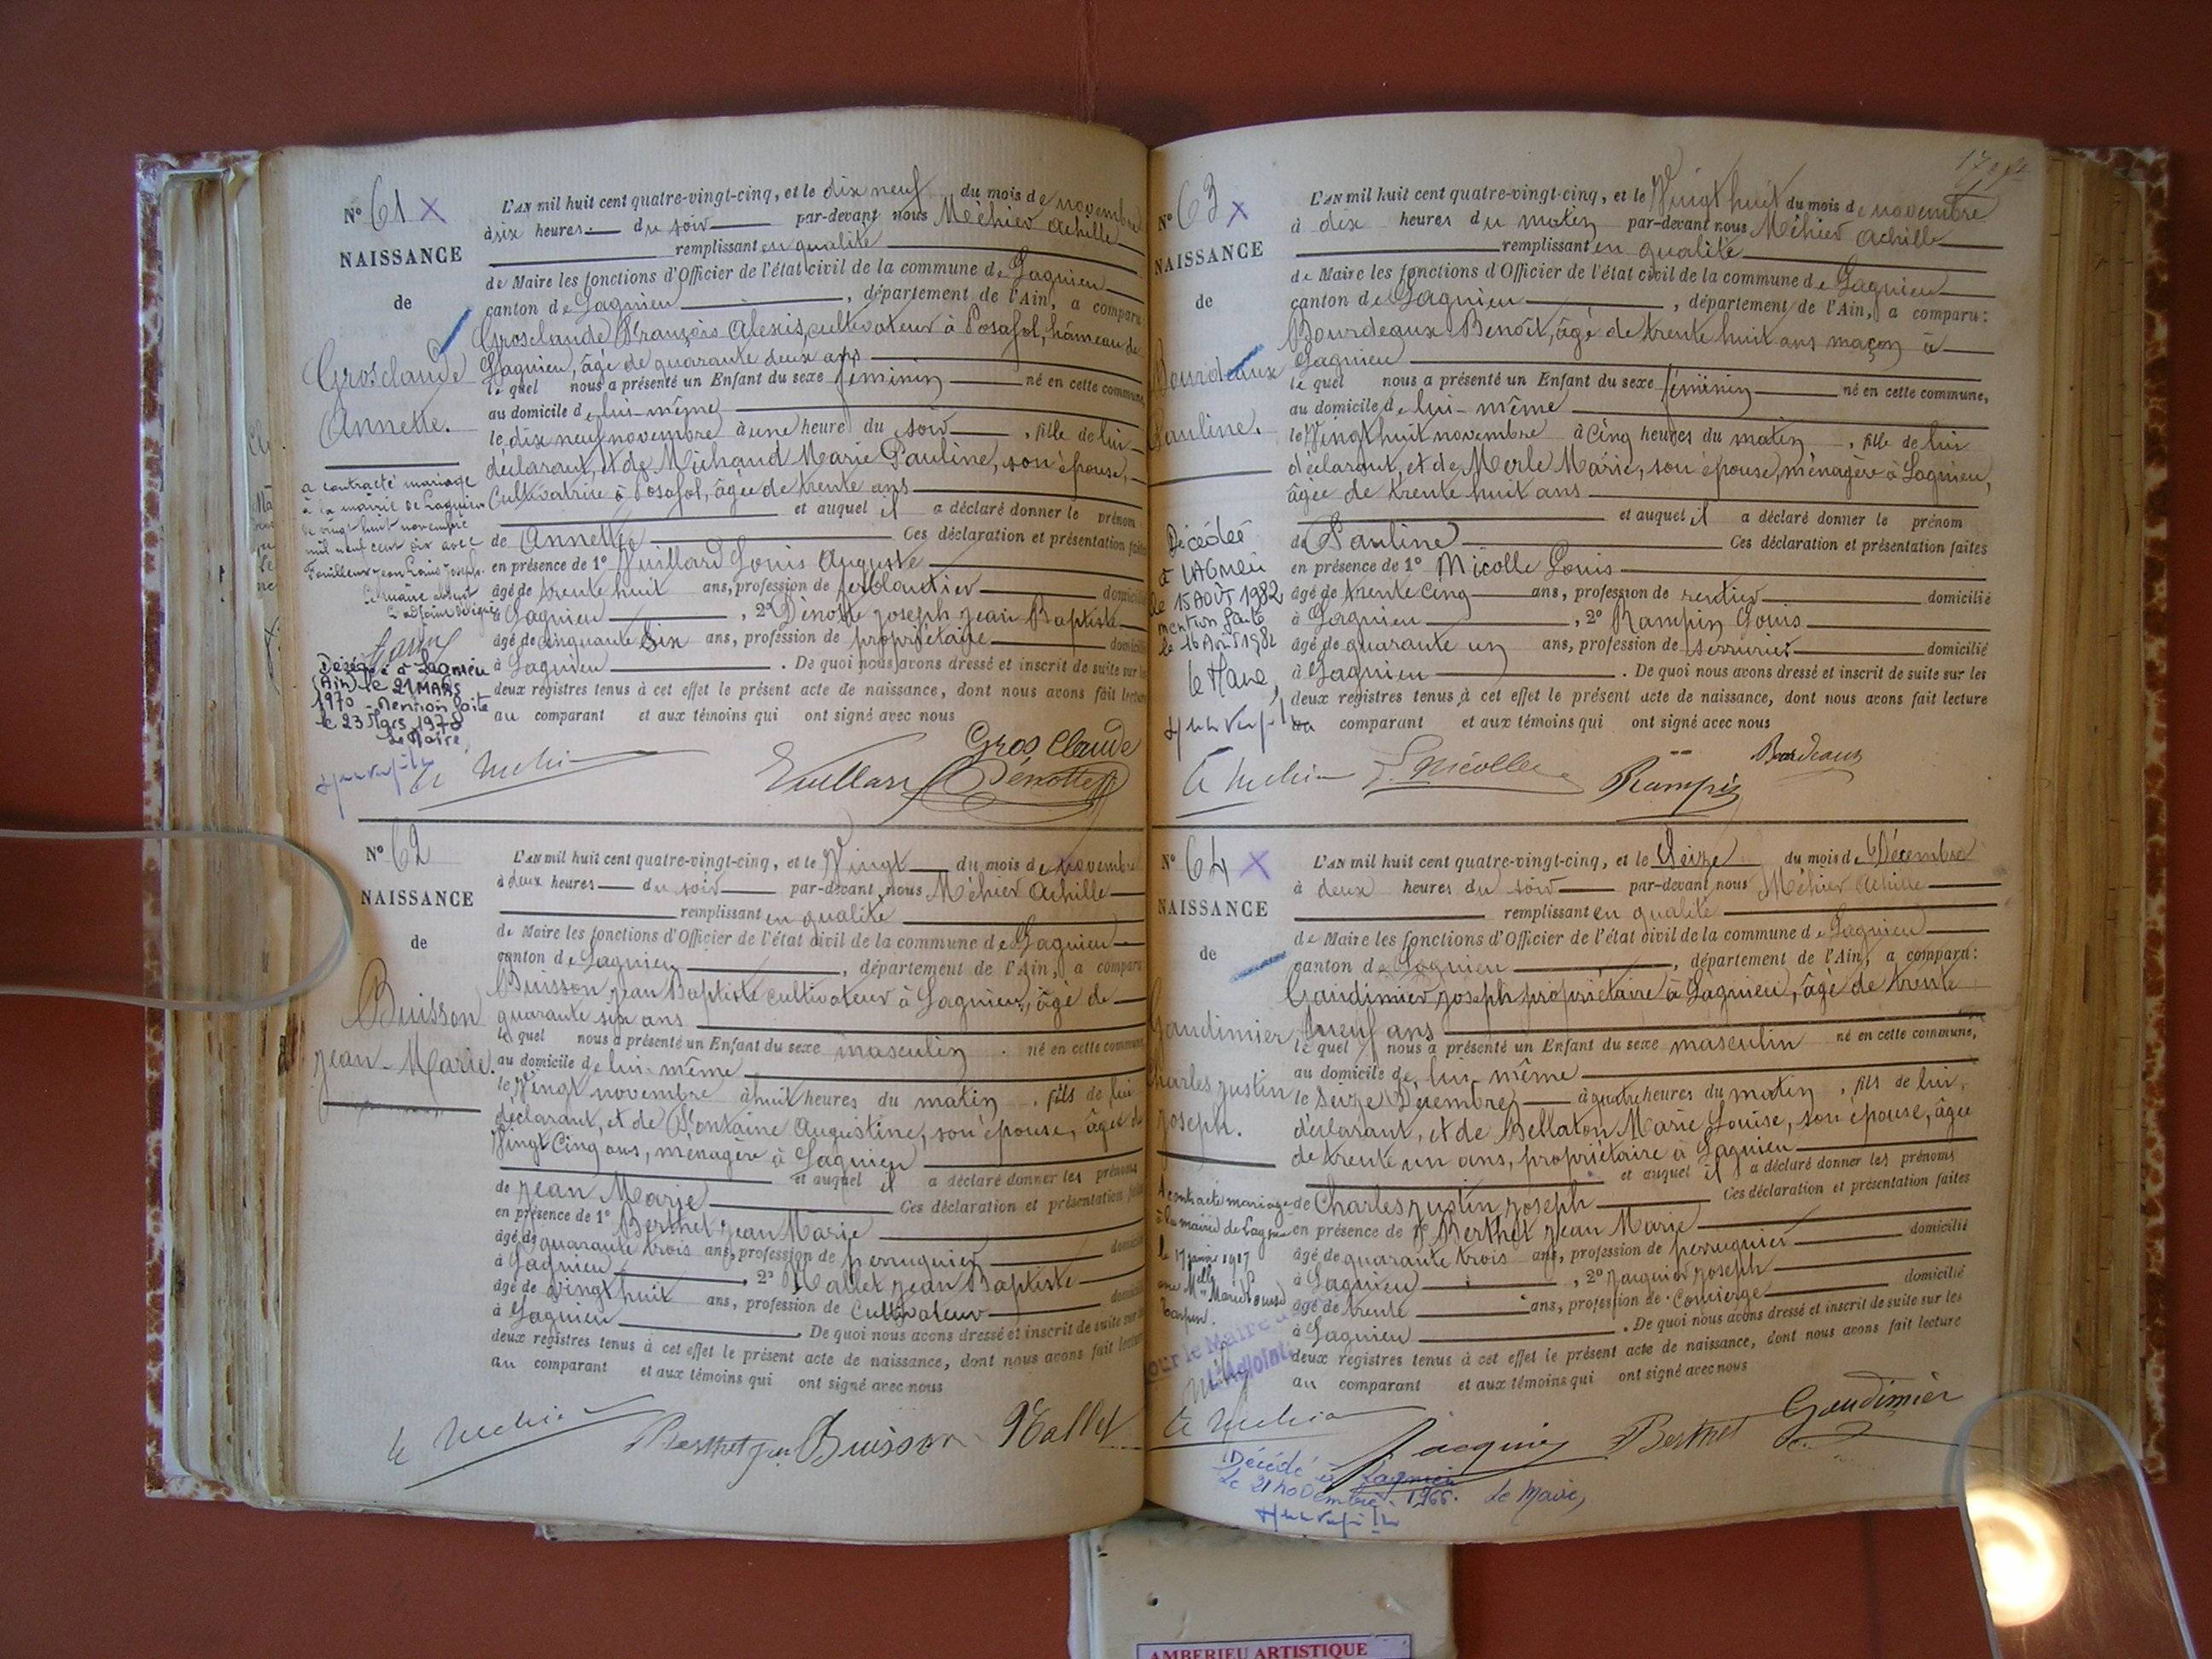 N° 61 X
NAISSANCE
de
Grosclaude
Annette.
a contracté mariage
à la mairie de Lagnieu
le vingt huit novembre
mil neuf cent dix avec
Jean Louis Joseph
Décédée à Lagnieu
(Ain) le 21 MARS
1970 - Mention faite
le 23 Mars 1970
Le Maire,
L'AN mil huit cent quatre-vingt-cinq, et le dix neuf du mois de novembre
à six heures du soir par-devant nous Méhier Achille
remplissant en qualité
de Maire les fonctions d'Officier de l'état civil de la commune de Lagnieu
canton de Lagnieu, département de l'Ain, a comparu
Grosclaude François Alexis, cultivateur à Posafol, hameau de
Lagnieu, âgé de quarante deux ans
le quel nous a présenté un Enfant du sexe féminin né en cette commune,
au domicile de lui-même
le dix neuf novembre à une heure du soir, fille de lui
déclarant, et de Michaud Marie Pauline, son épouse,
cultivatrice à Posafol, âgée de trente ans
et auquel il a déclaré donner le prénom
de Annette Ces déclaration et présentation faites
en présence de 1° Vuillard Louis Auguste
âgé de trente huit ans, profession de ferblantier domicilié
à Lagnieu, 2° Dénotte Joseph Jean Baptiste
âgé de cinquante six ans, profession de propriétaire domicilié
à Lagnieu. De quoi nous avons dressé et inscrit de suite sur les
deux registres tenus à cet effet le présent acte de naissance, dont nous avons fait lecture
au comparant et aux témoins qui ont signé avec nous
Gros Claude
A Méhier Vuillard Dénotte
N° 62
NAISSANCE
de
Buisson
Jean-Marie.
L'AN mil huit cent quatre-vingt-cinq, et le Vingt du mois de novembre
à deux heures du soir par-devant nous Méhier Achille
remplissant en qualité
de Maire les fonctions d'Officier de l'état civil de la commune de Lagnieu
canton de Lagnieu, département de l'Ain, a comparu
Buisson Jean Baptiste cultivateur à Lagnieu, âgé de
quarante six ans
le quel nous a présenté un Enfant du sexe masculin né en cette commune
au domicile de lui-même
le Vingt novembre à huit heures du matin, fils de lui
déclarant, et de Fontaine Augustine, son épouse, âgée de
Vingt Cinq ans, ménagère à Lagnieu
et auquel il a déclaré donner les prénoms
de Jean Marie Ces déclaration et présentation faites
en présence de 1° Berthet Jean Marie
âgé de quarante trois ans, profession de perruquier domicilié
à Lagnieu, 2° Mallet Jean Baptiste
âgé de vingt huit ans, profession de Cultivateur domicilié
à Lagnieu. De quoi nous avons dressé et inscrit de suite sur les
deux registres tenus à cet effet le présent acte de naissance, dont nous avons fait lecture
au comparant et aux témoins qui ont signé avec nous
A Méhier Berthet Buisson Mallet
N° 63 X
NAISSANCE
de
Bourdeaux
Pauline.
Décédée
à LAGNIEU
le 15 AOÛT 1982
mention faite
le 16 Août 1982
le Maire,
L'AN mil huit cent quatre-vingt-cinq, et le Vingt huit du mois de novembre
à dix heures du matin par-devant nous Méhier Achille
remplissant en qualité
de Maire les fonctions d'Officier de l'état civil de la commune de Lagnieu
canton de Lagnieu, département de l'Ain, a comparu:
Bourdeaux Benoît, âgé de trente huit ans maçon à
Lagnieu
le quel nous a présenté un Enfant du sexe féminin né en cette commune,
au domicile de lui-même
le Vingt huit novembre à Cinq heures du matin, fille de lui
déclarant, et de Merle Marie, son épouse, ménagère à Lagnieu,
âgée de trente huit ans
et auquel il a déclaré donner le prénom
de Pauline Ces déclaration et présentation faites
en présence de 1° Nicolle Louis
âgé de trente cinq ans, profession de rentier domicilié
à Lagnieu, 2° Rampin Louis
âgé de quarante un ans, profession de serrurier domicilié
à Lagnieu. De quoi nous avons dressé et inscrit de suite sur les
deux registres tenus à cet effet le présent acte de naissance, dont nous avons fait lecture
au comparant et aux témoins qui ont signé avec nous
A Méhier L. Nicolle Rampin Bordeaux
N° 64 X
NAISSANCE
de
Gaudimier,
Charles Justin
Joseph.
A contracté mariage
à la mairie de Lagnieu
le 17 janvier 1917
avec Melle
Pour le Maire
L'Adjoint
L'AN mil huit cent quatre-vingt-cinq, et le Seize du mois de Décembre
à deux heures du soir par-devant nous Méhier Achille
remplissant en qualité
de Maire les fonctions d'Officier de l'état civil de la commune de Lagnieu
canton de Lagnieu, département de l'Ain, a comparu:
Gaudimier Joseph propriétaire à Lagnieu, âgé de trente
neuf ans
le quel nous a présenté un Enfant du sexe masculin né en cette commune,
au domicile de lui-même
le Seize Décembre à quatre heures du matin, fils de lui,
déclarant, et de Bellaton Marie Louise, son épouse, âgée
de trente un ans, propriétaire à Lagnieu
et auquel il a déclaré donner les prénoms
de Charles Justin Joseph Ces déclaration et présentation faites
en présence de 1° Berthet Jean Marie
âgé de quarante trois ans, profession de perruquier domicilié
à Lagnieu, 2° Jacquier Joseph
âgé de trente ans, profession de Concierge domicilié
à Lagnieu. De quoi nous avons dressé et inscrit de suite sur les
deux registres tenus à cet effet le présent acte de naissance, dont nous avons fait lecture
au comparant et aux témoins qui ont signé avec nous
A Méhier Jacquier Berthet Gaudimier
Décédé à Lagnieu
le 21 novembre 1966. Le Maire,
AMBERIEU ARTISTIQUE